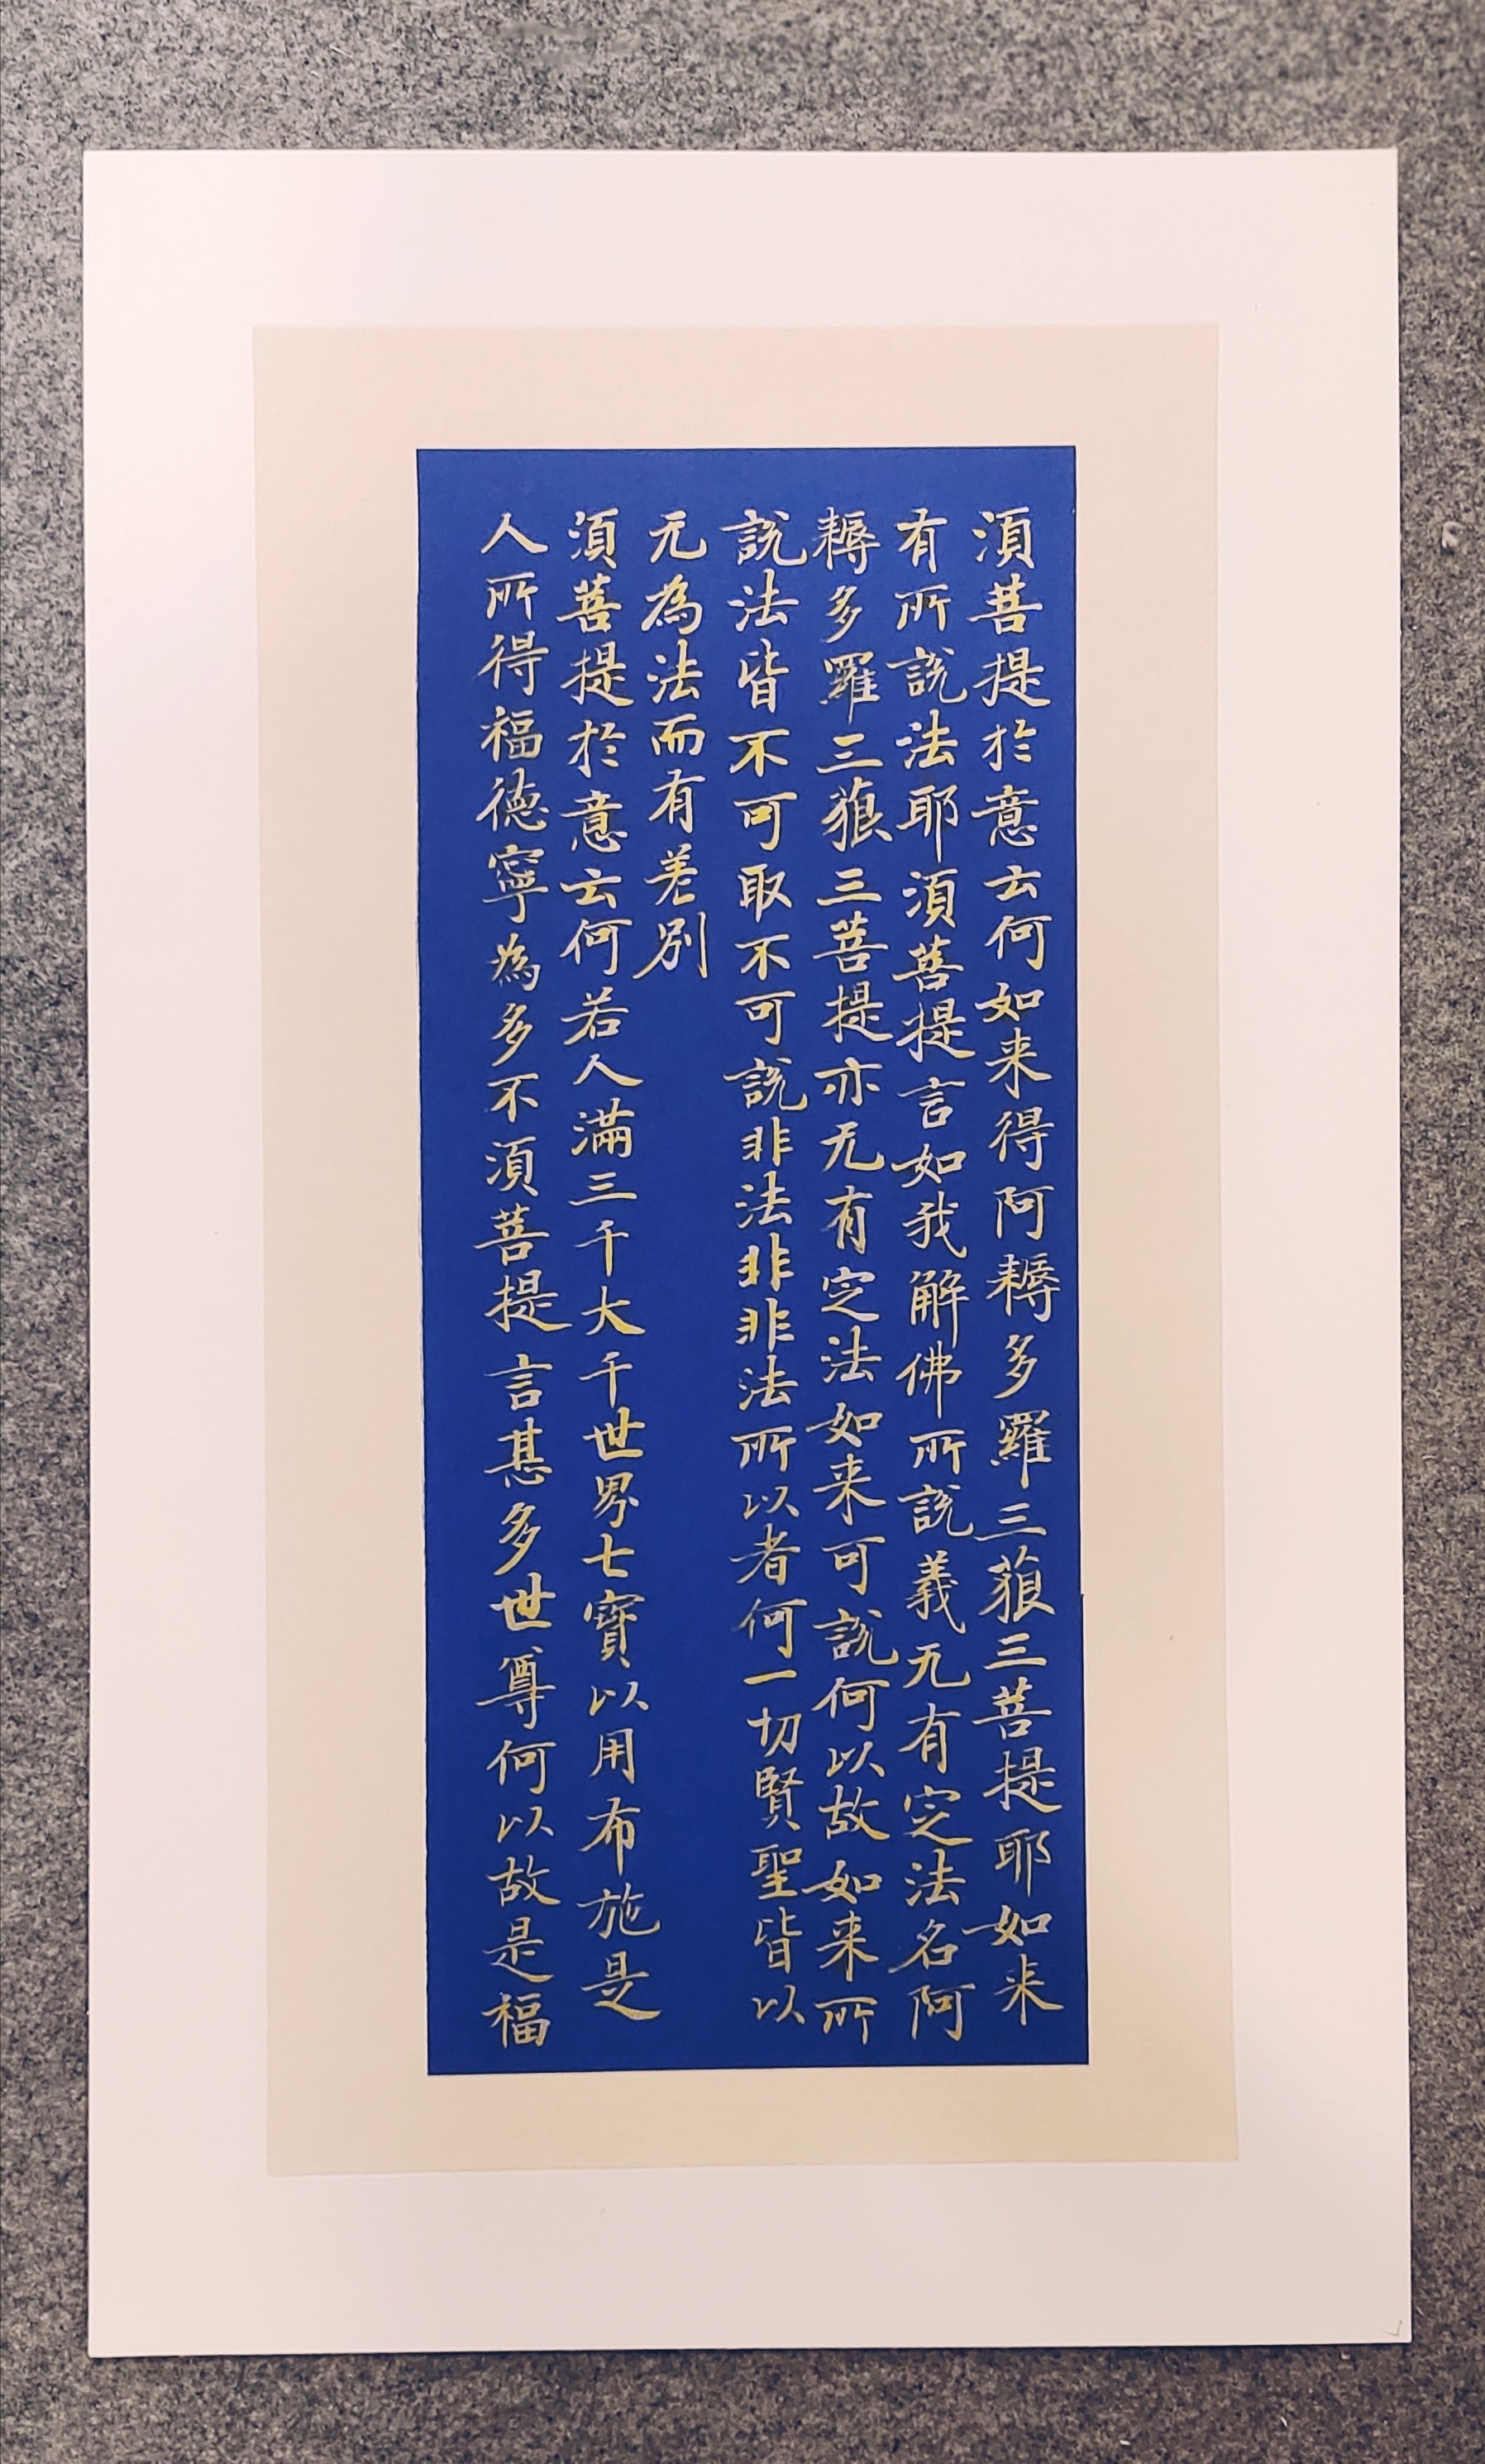 須菩提於意云何如来得阿耨多羅三藐三菩提耶如来
有所說法耶須菩提言如我解佛所說義无有定法名阿
耨多羅三藐三菩提亦无有定法如来可說何以故如来所
說法皆不可取不可說非法非非法所以者何一切賢聖皆以
无為法而有差別
須菩提於意云何若人滿三千大千世界七寶以用布施是
人所得福德寧為多不須菩提言甚多世尊何以故是福